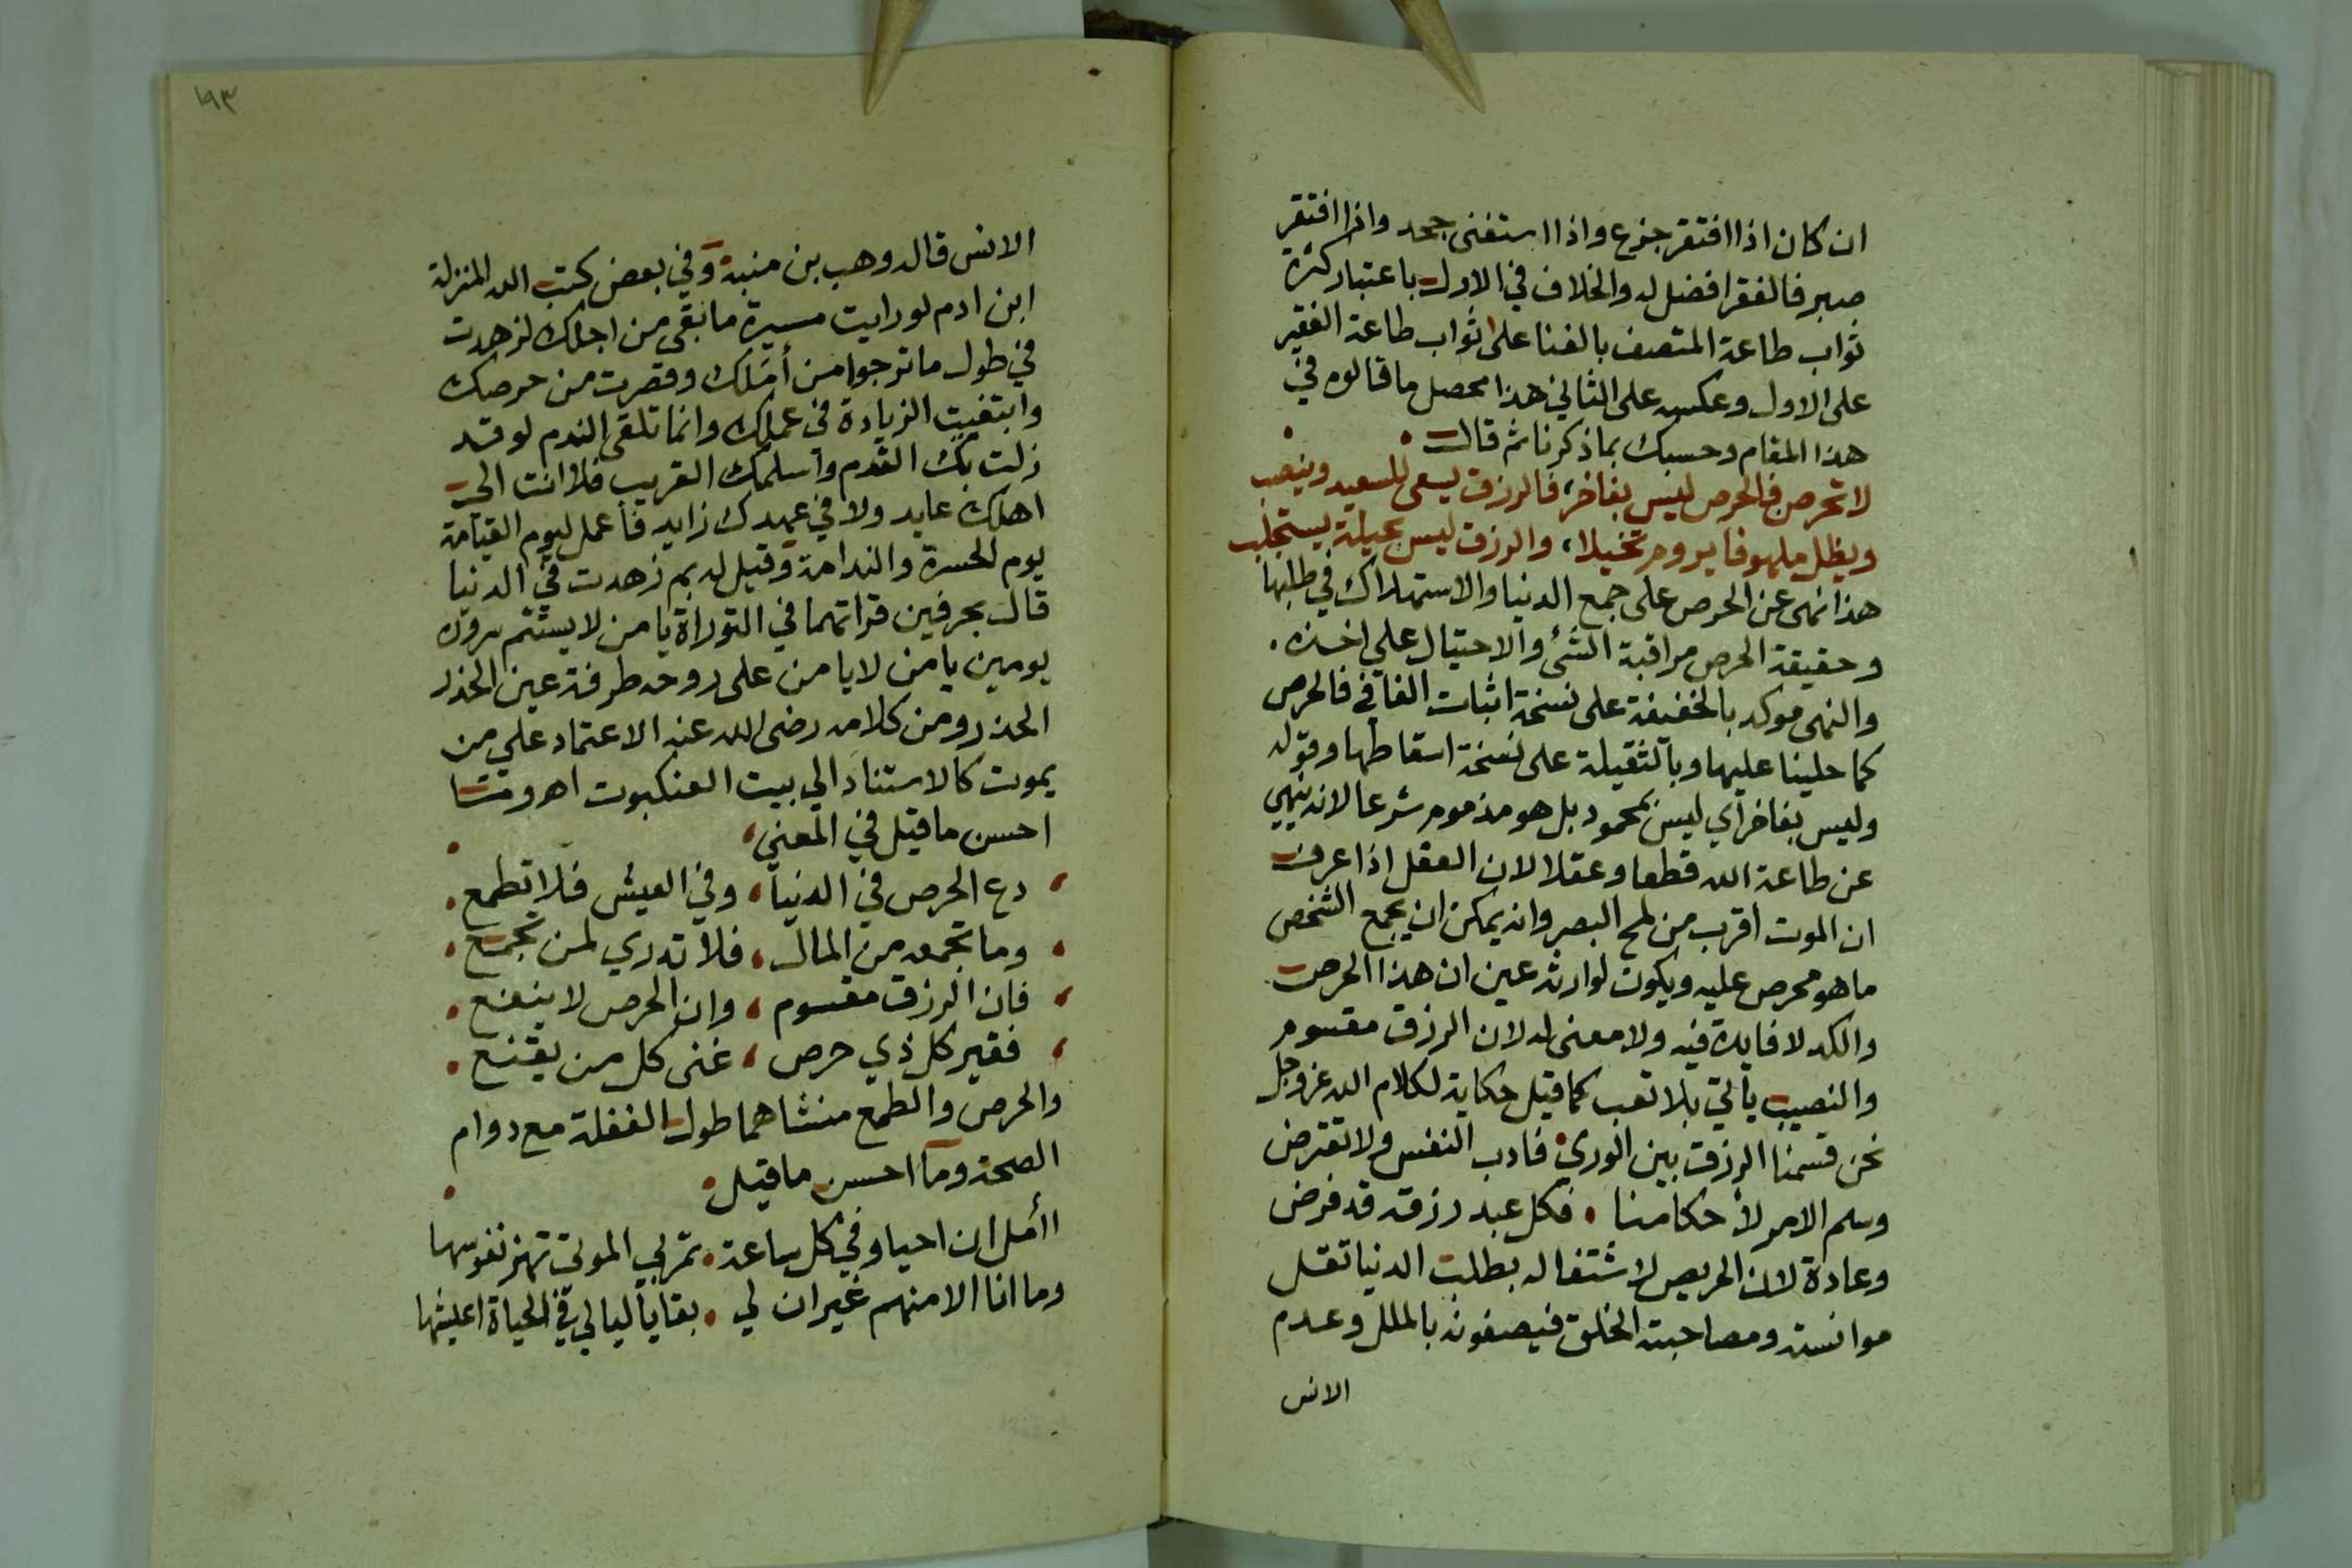 ان كان اذا افتقر جزع واذا استغنى جحد واذا افتقر
صبر فالفقر افضل له والخلاف في الاول باعتبار كثرة
ثواب طاعة المتصف بالغنا على ثواب طاعة الفقير
على الاول وعكسه على الثاني هذا محصل ما قالوه في
هذا المقام وحسبك بما ذكرنا ثم قال
لا تحرصن فالحرص ليس بفاخر، فالرزق يسعى للسعيد وينصب
ويظل ملهوفا يروم تحيلا، والرزق ليس بحيلة يستجلب
هذا نهى عن الحرص على جمع الدنيا والاستهلاك في طلبها
وحقيقة الحرص مراقبة الشئ والاحتيال على اخذه.
والنهى موكد بالخفيفة على نسخة اثبات الفا في فالحرص
كما حلينا عليها وبالثقيلة على نسخة اسقاطها وقوله
وليس بفاخر اي ليس بمحمود بل هو مذموم شرعا لانه ينهي
عن طاعة الله قطعا وعقلا لان العقل اذا عرف
ان الموت اقرب من لمح البصر وانه يمكن ان يجمع الشخص
ما هو محرص عليه ويكون لوارثه عين ان هذا الحرص
والكد لا فايدة فيه ولا معنى له لان الرزق مقسوم
والنصيب يأتي بلا تعب كما قيل حكاية لكلام الله عز وجل
نحن قسمنا الرزق بين الوري، فادب النفس ولا تعترض
وسلم الامر لأحكامنا، فكل عبد رزقه قد فرض
وعادة لان الحريص لاشتغاله بطلب الدنيا تقل
موانسته ومصاحبته الخلق فيصفونه بالملل وعدم
الانس
١٩٣
الانس قاله وهب بن منبه وفي بعض كتب الله المنزلة
ابن ادم لو رايت مسيرة ما بقى من اجلك لزهدت
في طول ما ترجوا من أملك وقصرت من حرصك
وابتغيت الزيادة في عملك وانما تلقى الندم لو قد
زلت بك القدم واسلمك القريب فلا انت الى
اهلك عايد ولا في عمرك زايد فاعمل ليوم القيامة
يوم الحسرة والندامة وقيل له بم زهدت في الدنيا
قال بحرفين قراتهما في التوراة يا من لا يستتم سروره
يومين يا من لا يامن على روحه طرفة عين الحذر
الحذر ومن كلامه رضى الله عنه الاعتماد على من
يموت كالاستناد الي بيت العنكبوت اهـ ومتسا
احسن ما قيل في المعني،
، دع الحرص في الدنيا، وفي العيش فلا تطمع.
، وما تجمعه من المال، فلا تدري لمن تجمع.
، فان الرزق مقسوم، وان الحرص لا ينفع.
، فقير كل ذي حرص، غنى كل من يقنع.
والحرص والطمع منشاهما طول الغفلة مع دوام
الصحة وما احسن ما قيل،
اأمل ان احيا وفي كل ساعة، تمر بي الموتى تهز نعوشها
وما انا الا منهم غير ان لي، بقايا ليالي في الحياة اعيشها